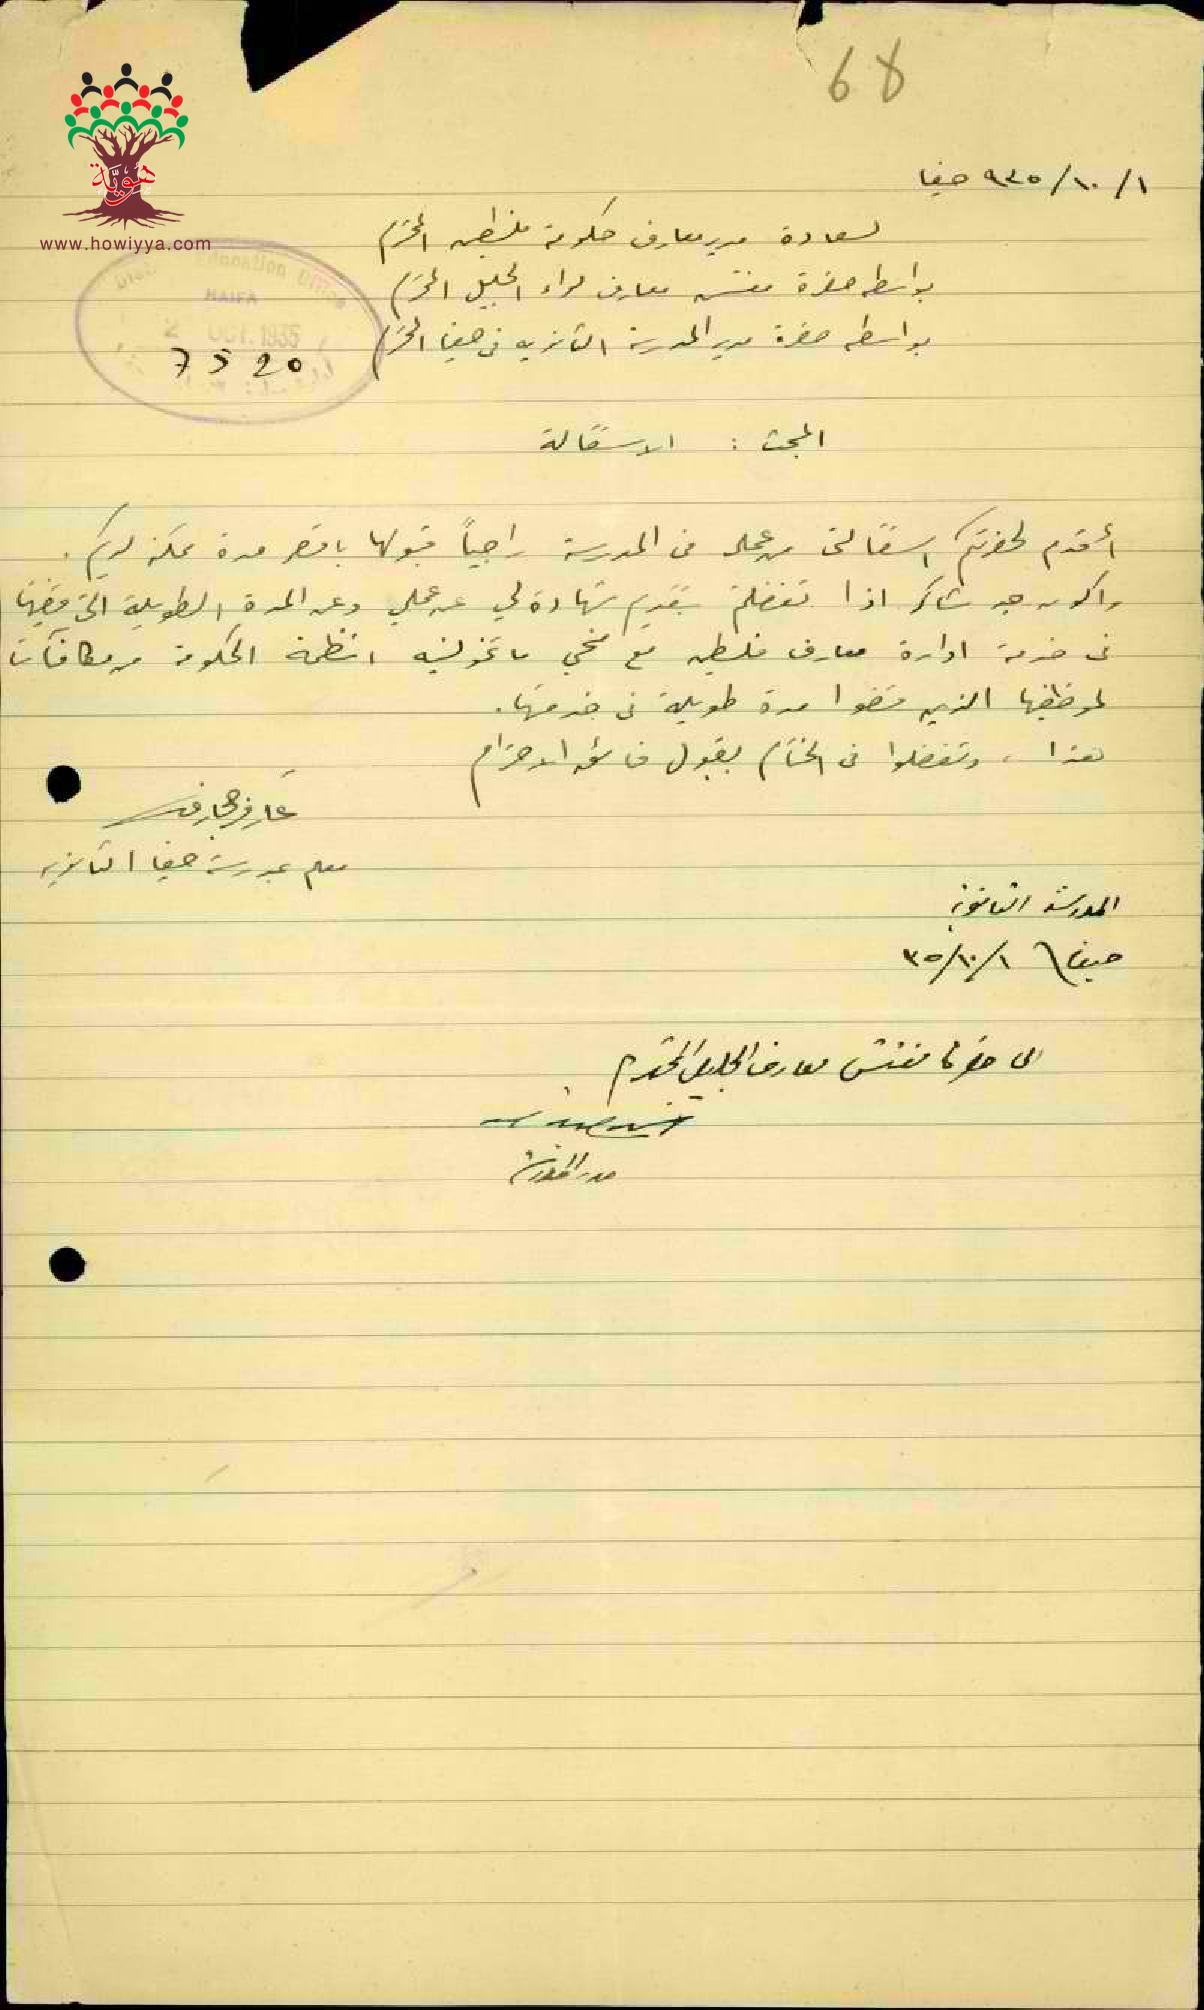 68
هوية
www.howiyya.com
١/١٠/٩٣٥ حيفا
لسعادة مدير معارف حكومة فلسطين المحترم
بواسطة حضرة مفتش معارف لواء الجليل المحترم
بواسطة حضرة مدير المدرسة الثانوية في حيفا المحترم
District Education Office
HAIFA
2 OCT. 1935
7520
المبحث : الاستقالة
أقدم لحضرتكم استقالتي من عملي في المدرسة راجياً قبولها باقصر مدة ممكنة لديكم .
واكون جد شاكر اذا تفضلتم بتقديم شهادة لي عن عملي وعن المدة الطويلة التي قضيتها
في خدمة ادارة معارف فلسطين مع منحي ما تخولنيه انظمة الحكومة من مكافآت
لموظفيها الذين قضوا مدة طويلة في خدمتها .
هذا ، وتفضلوا في الختام بقبول فائق الاحترام
عارف
معلم بمدرسة حيفا الثانوية
المدرسة الثانوية
حيفا \ ١/١٠/٣٥
الى حضرة مفتش معارف الجليل المحترم
مدير المدرسة